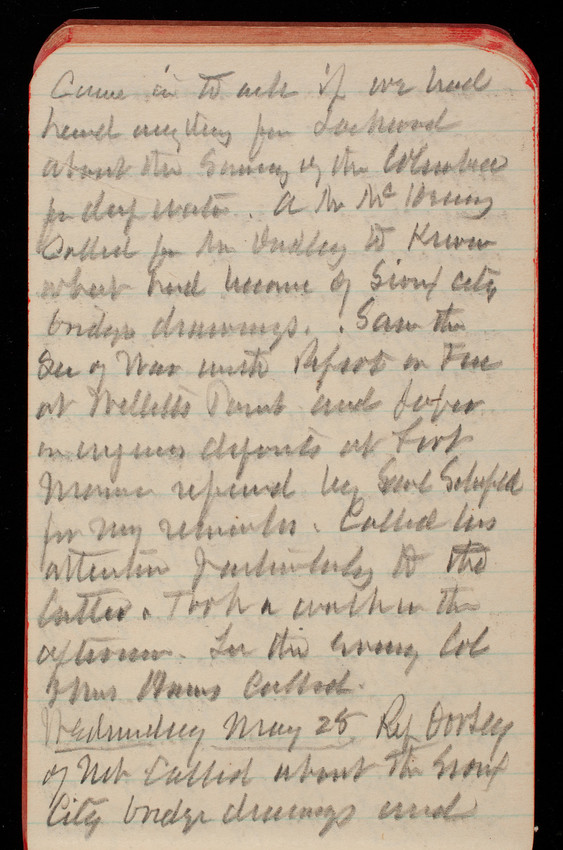 Came in to ask if we had
heard anything from Lockwood
about the Survey of the Columbia
for deep water. A Mr Mc
Called for Mr Dudley to Know
what had become of Sioux City
bridge drawings. Saw the
Sec of War with Report on Fire
at Willetts Point and Paper
on engineer deposits at Fort
Monroe referred by Genl Schofield
for my remarks. Called his
attention particularly to the
latter. Took a walk in the
afternoon. In the evening Col
& Mrs Called.
Wednesday May 28 Rep Dorsey
of Neb Called about the Sioux
City bridge drawings and